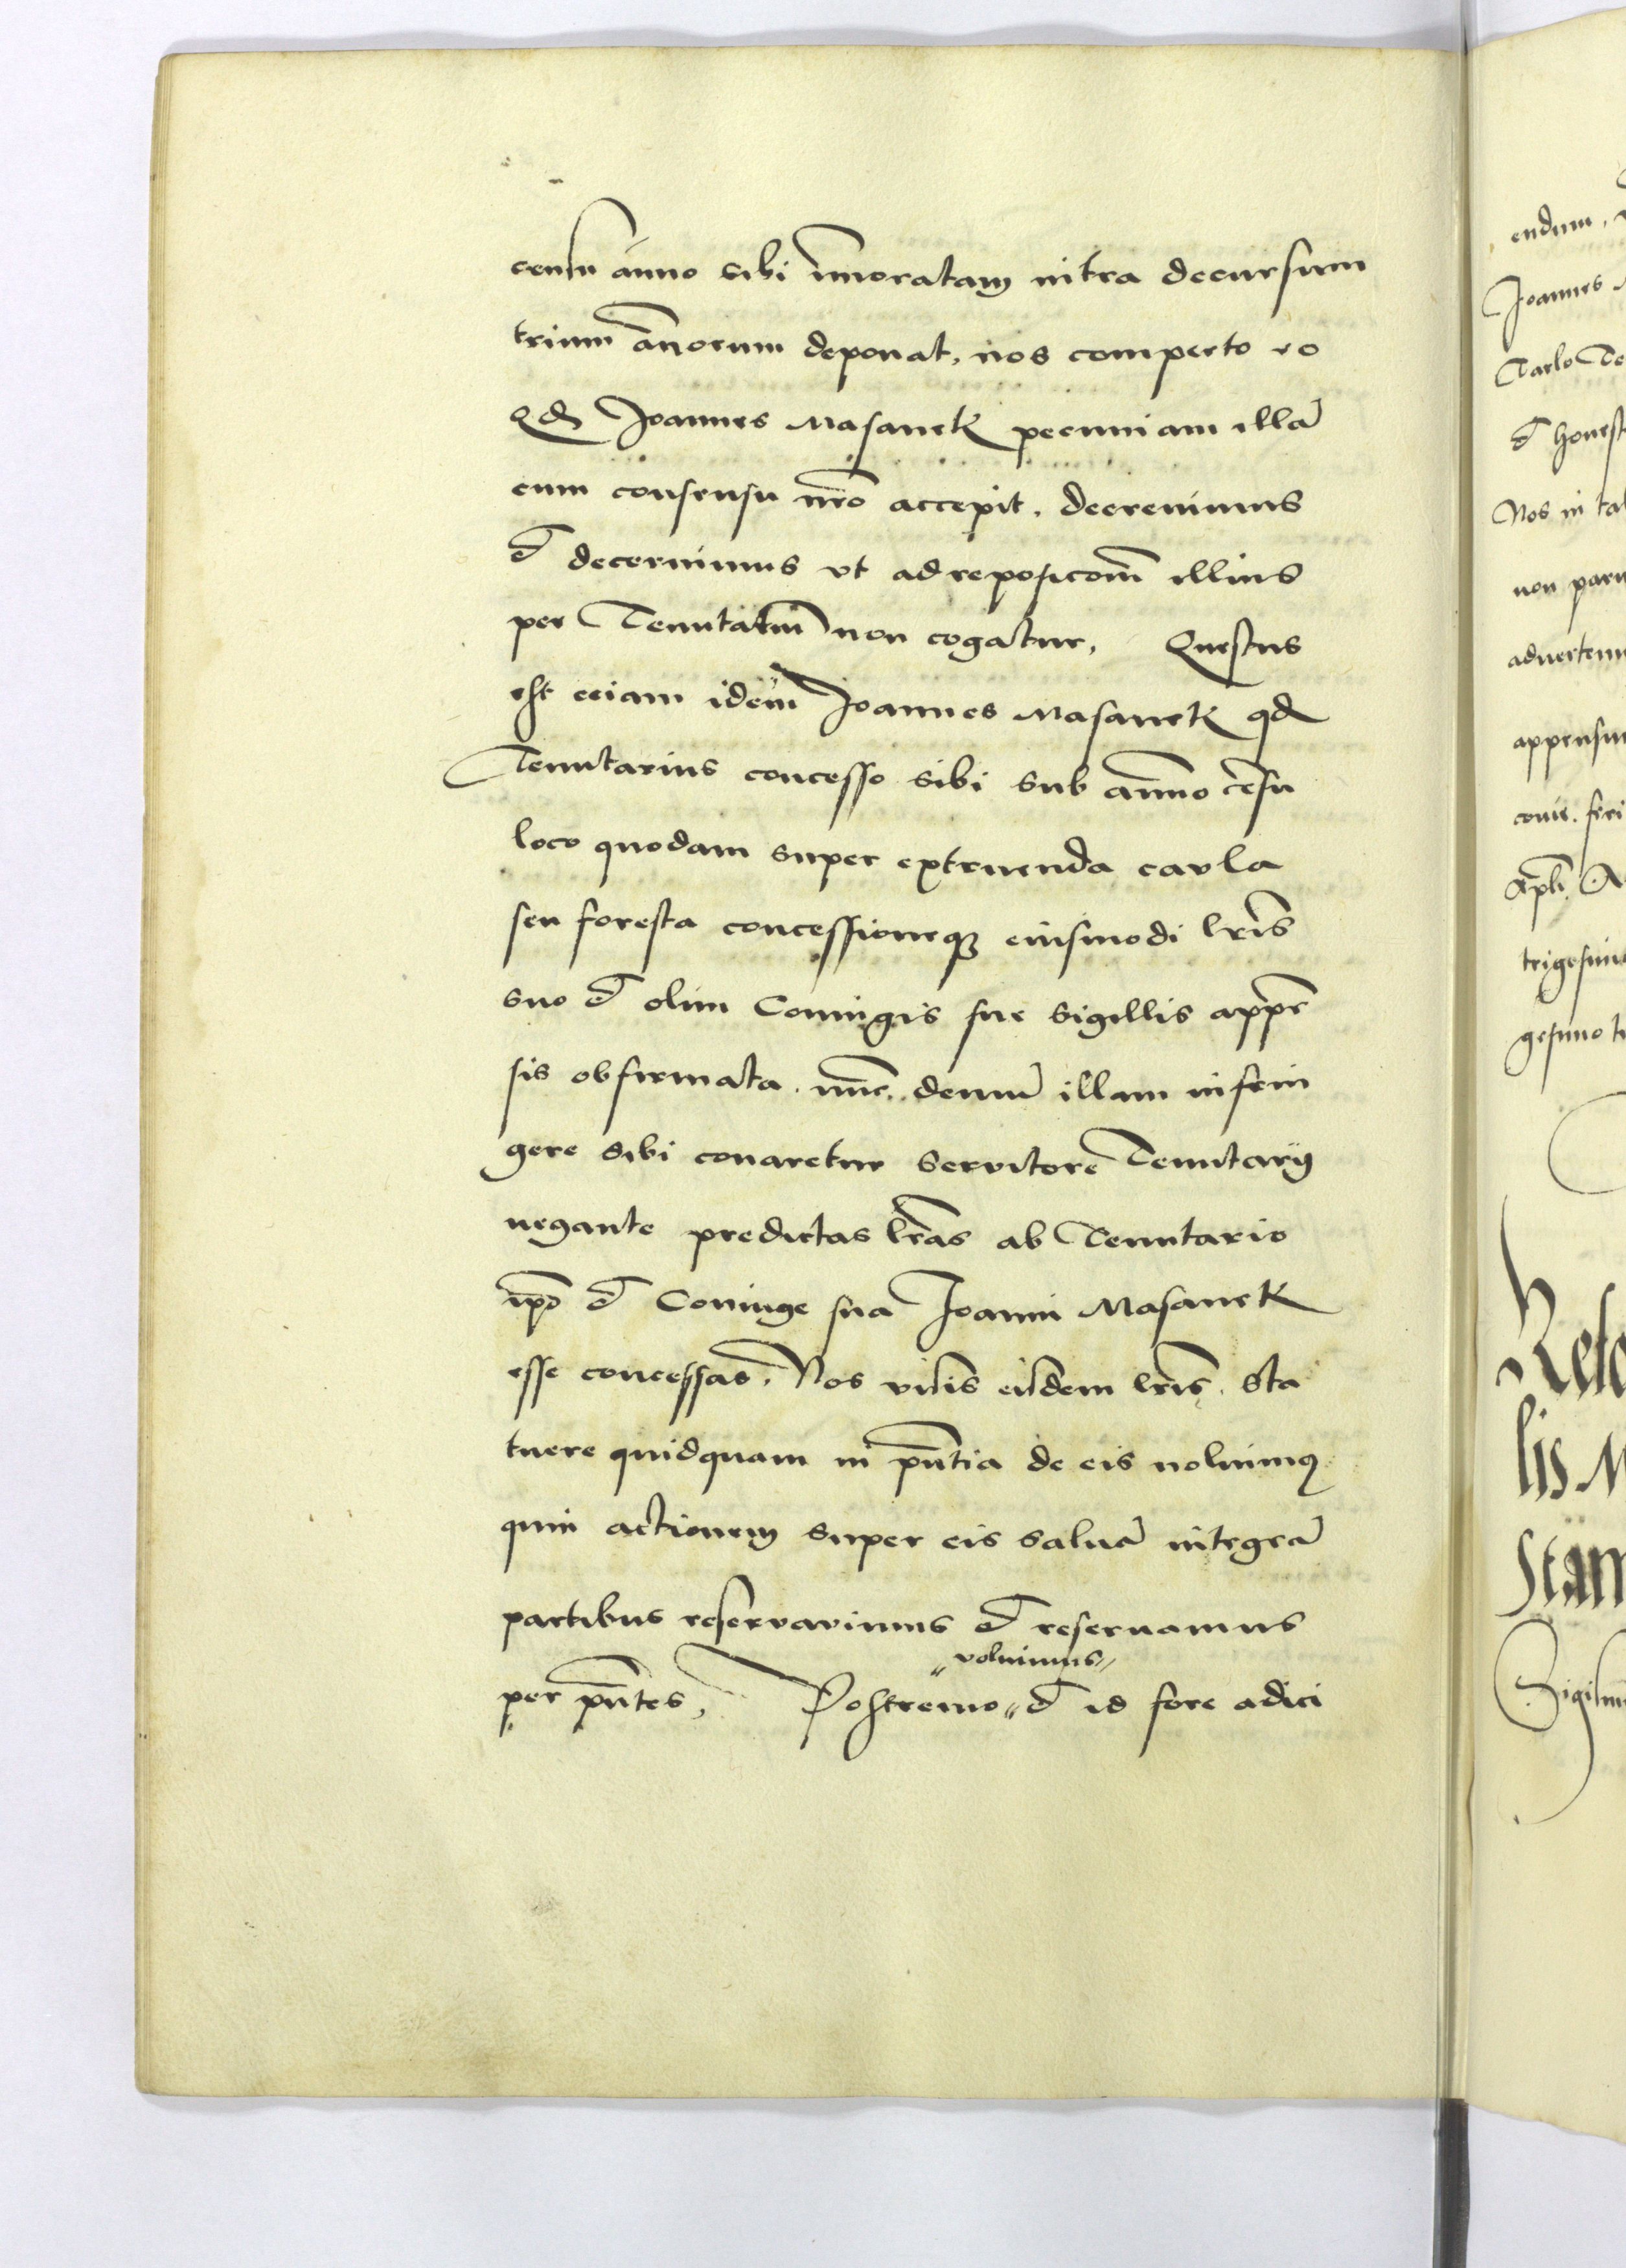 censu anno sibi im̄oratam intra decursum
trium an̄orum deponat, nos comperto eo
Qd Joannes Masanek pecuniam illā
cum consensu nr̄o accepit. decrevimus
et decernimus vt ad reposicom̄ illius
per Tenutariū non cogatur, Questus
est eciam idem Joannes Masanek qd
Tenutarius concesso sibi sub anno cēsu
loco quodam super extruenda caula
seu foresta concessioneq3 eiusmodi lrīs
suo et olim Coniugis sue Sigillis appē
sis obfirmata. nūc denuō illam infrin
gere sibi conaretur Servitore Tenutarÿ
negante predictas lrās ab Tenutario
ip̄o et Coniuge sua Joanni Masanek
esse concessas. Nos visis eisdem lrīs. Sta
tuere quidquam in pn̄tia de eis noluimꝯ
quin actionem super eis saluā integrā
partibus reservavimus et reseruamus
voluimus
per pn̄tes, Postremo et id fore adici
endum,
Joannes
Tarlo Te
et honest
Nos in tal
non paru
advertenn
appensum
trigesimo
gesimo t
Rela
lis M
Stan